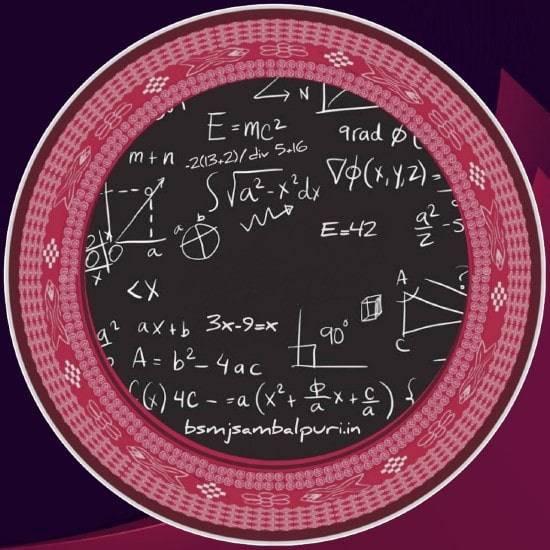 N
E=mc²
grad ϕ(
m+n
-2(13+2)/div 5+16
∫√a²-x²dx
∇ϕ(x,y,z)=
a
b
E=42
a²/2 -5
a
x
<x
A
?
C
q² ax+b 3x-9=x
90°
A=b²-4ac
(x) 4c - =a(x²+ϕ/a x+c/a) {
bsmjsambalpuri.in